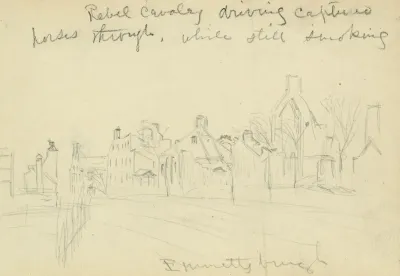 Rebel Cavalry driving captured
horses through, while still smoking